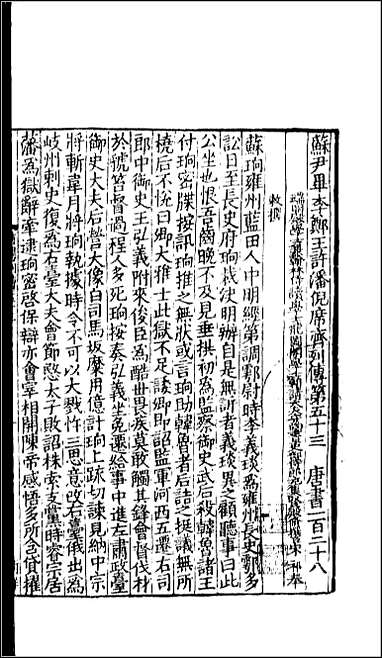 蘇尹畢李鄭王許潘倪席齊列傳第五十三　唐書一百二十八
端明殿學士兼翰林侍讀學士龍圖閣學士朝請大夫守尚書吏部侍郎充集賢殿脩撰臣宋　祁奉
敕撰
蘇珦雍州藍田人中明經第調鄠尉時李義琰爲雍州長史鄠多
訟日至長史府珦裁决明辦自是無訴者義琰異之顧聽事曰此
公坐也恨吾齒晚不及見垂拱初爲監察御史武后殺韓魯諸王
付珦密牒按訊珦推之無狀或言珦助韓魯者后詰之挺議無所
橈后不悅曰卿大雅士此獄不足諉卿即詔監軍河西五遷右司
郎中御史王弘義附來俊臣爲酷世畏疾莫敢觸其鋒會督伐材
於虢笞督過程人多死珦按奏弘義坐免遷給事中進左肅政臺
御史大夫后營大像白司馬坂糜用億計珦上疏切諫見納中宗
將斬韋月將珦執據時令不可以大戮忤三思意改右臺俄出爲
岐州刺史復爲右臺大夫會節愍太子敗詔株索支黨時睿宗居
藩爲獄辭牽逮珦密啓保辯亦會宰相開陳帝感悟多所含貸擢